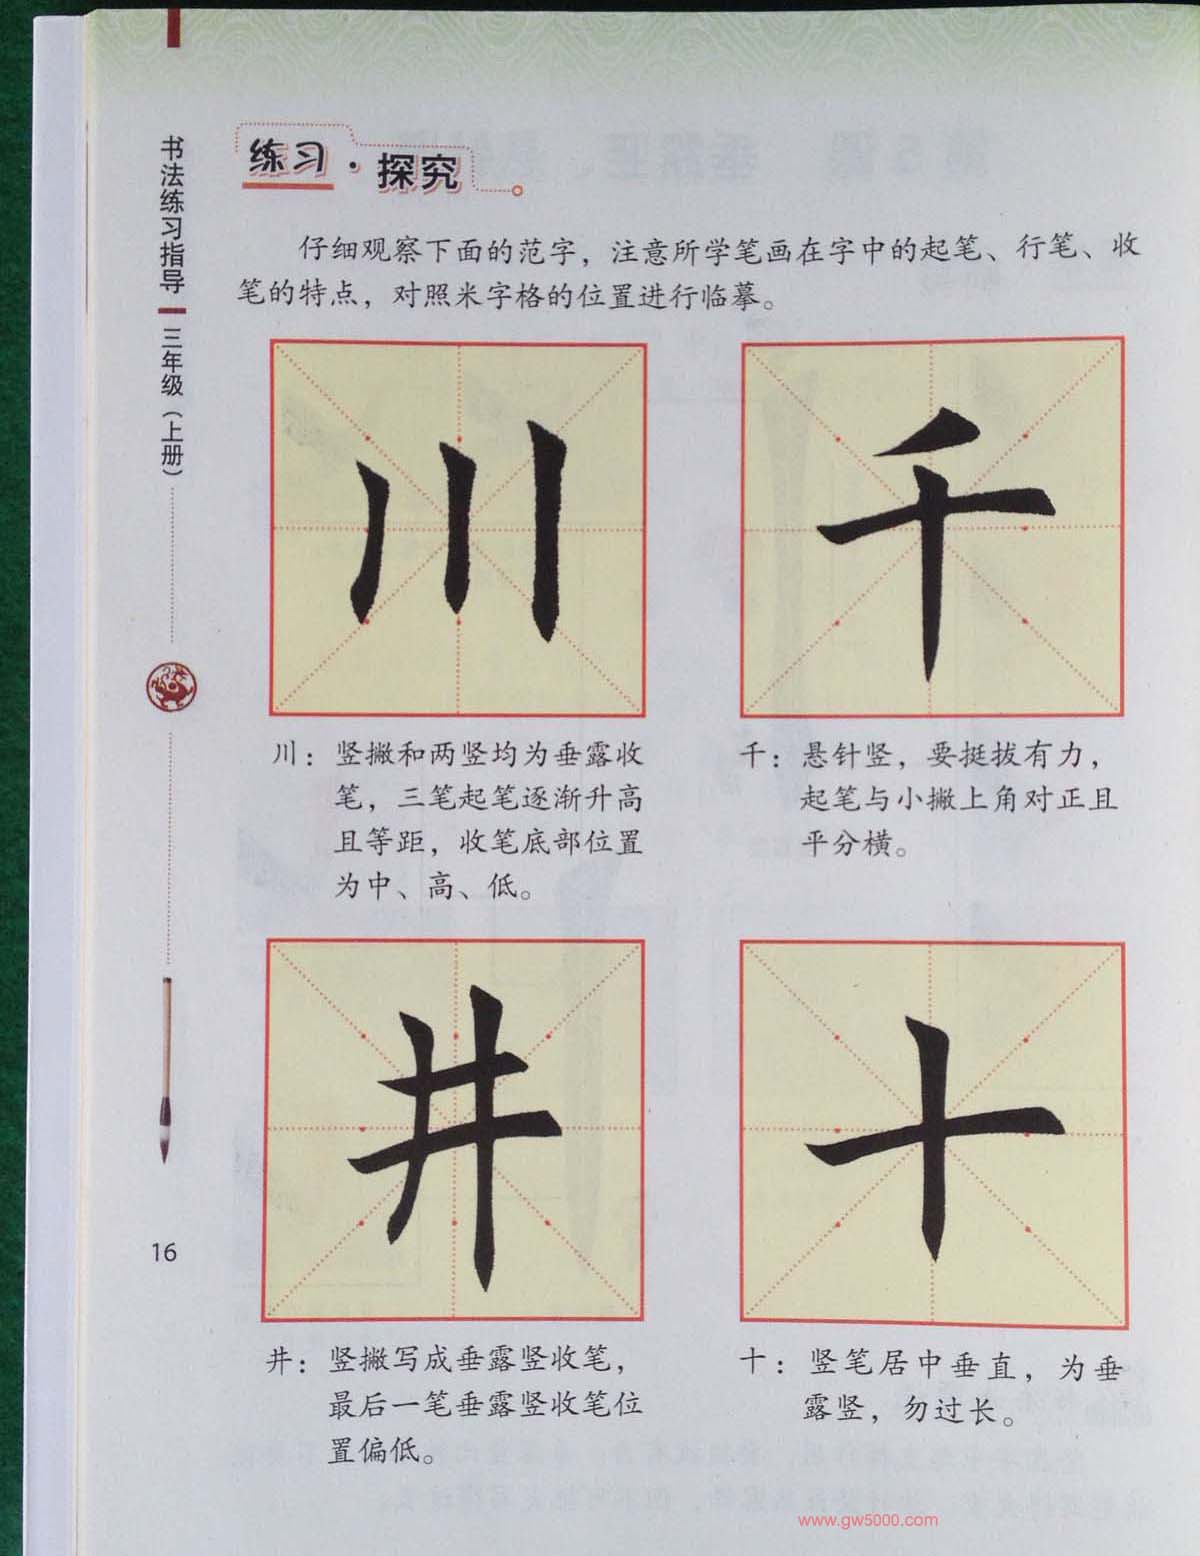 书法练习指导
三年级（上册）
16
练习·探究
仔细观察下面的范字，注意所学笔画在字中的起笔、行笔、收
笔的特点，对照米字格的位置进行临摹。
川
千
川：竖撇和两竖均为垂露收
笔，三笔起笔逐渐升高
且等距，收笔底部位置
为中、高、低。
千：悬针竖，要挺拔有力，
起笔与小撇上角对正且
平分横。
井
十
井：竖撇写成垂露竖收笔，
最后一笔垂露竖收笔位
置偏低。
十：竖笔居中垂直，为垂
露竖，勿过长。
www.gw5000.com